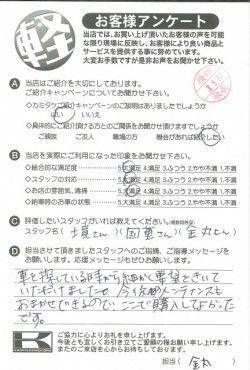 軽
お客様アンケート
当店では、お買い上げ頂いたお客様の声を可能
な限り現場に反映し、お客様により良い商品と
サービスを提供する事に努めています。
大変お手数ですが是非お声をお聞かせ下さい。
A 当店はご紹介を大切にしております。
ご紹介キャンペーンについてお聞かせ下さい。
◇カミタケご紹介キャンペーンのご説明はありましたでしょうか
はい いいえ
◇具体的にご紹介頂ける方とのご関係をお聞かせ頂けますでしょうか
ご親族 ご友人 職場の方 機会があれば紹介したい
B 当店を実際にご利用になった印象をお聞かせ下さい。
◇総合的な満足度 5.大満足 4.満足 3.ふつう 2.やや不満 1.不満
◇スタッフの対応 5.大満足 4.満足 3.ふつう 2.やや不満 1.不満
◇お店の雰囲気、清掃 5.大満足 4.満足 3.ふつう 2.やや不満 1.不満
◇納車時のお車の状態 5.大満足 4.満足 3.ふつう 2.やや不満 1.不満
C 評価したいスタッフがいれば教えてください。(複数回答可)
スタッフ名( 境さん )( 国重さん )( 金丸さん )
D 担当させて頂きましたスタッフへのご指摘、ご指導メッセージを
お願いします。応援メッセージもぜひお願いします。
車を探している時から細かく要望をきいて
いただけました。今後のメンテナンスも
おまかせできるので、ここで購入してよかった
です。
K
ご協力に心よりお礼を申し上げます。
今後とも宜しくお引き立てご愛顧の程お願い申し上げます。
またのご来店を心からお待ちしております。
担当( 金丸 )